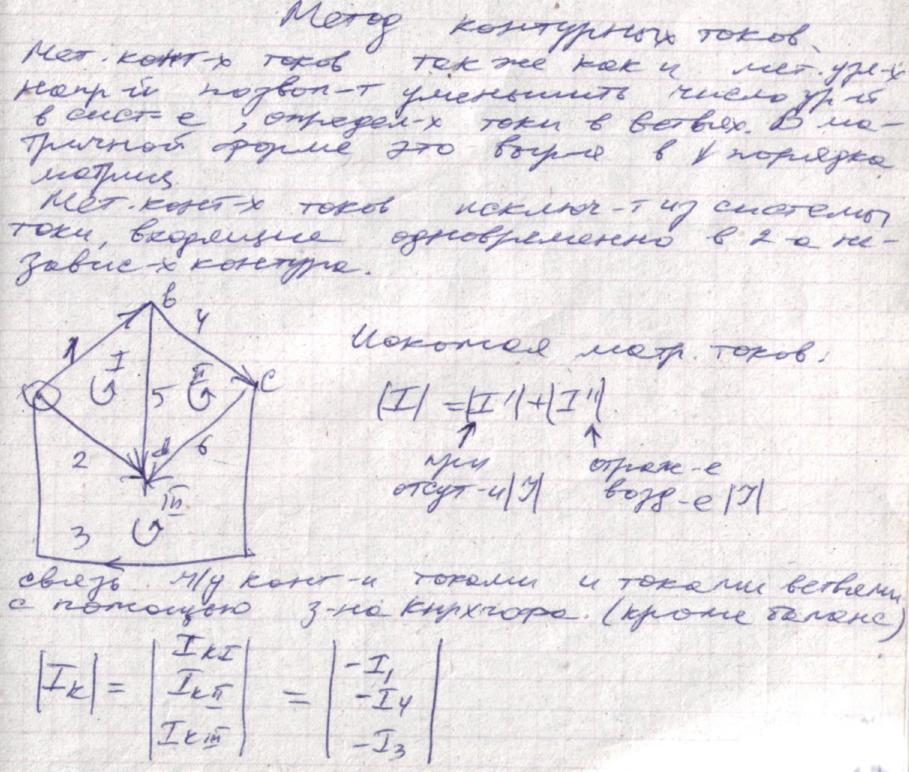 Метод контурных токов.
Мет. конт-х токов так же как и мет. узл-х
напр-й позвол-т уменьшить число ур-й
в сист-е, определ-х токи в ветвях. В ма-
тричной форме это выр-е в ↓ порядка
матриц
Мет. конт-х токов исключ-т из системы
токи, входящие одновременно в 2-а не-
завис-х контура.
B
1 4
I II C
5
2 d 6
III
3
Искомая матр. токов:
|I| = |I'| + |I''|
при отраж-е
отсут-и |J| возд-е |J|
связь м/у конт-и токами и токами ветвями
с помощью з-на Кирхгофа. (кроме баланс)
|Iк| = | IкI | = | -I₁ |
| IкII | | -I₄ |
| IкIII | | -I₃ |